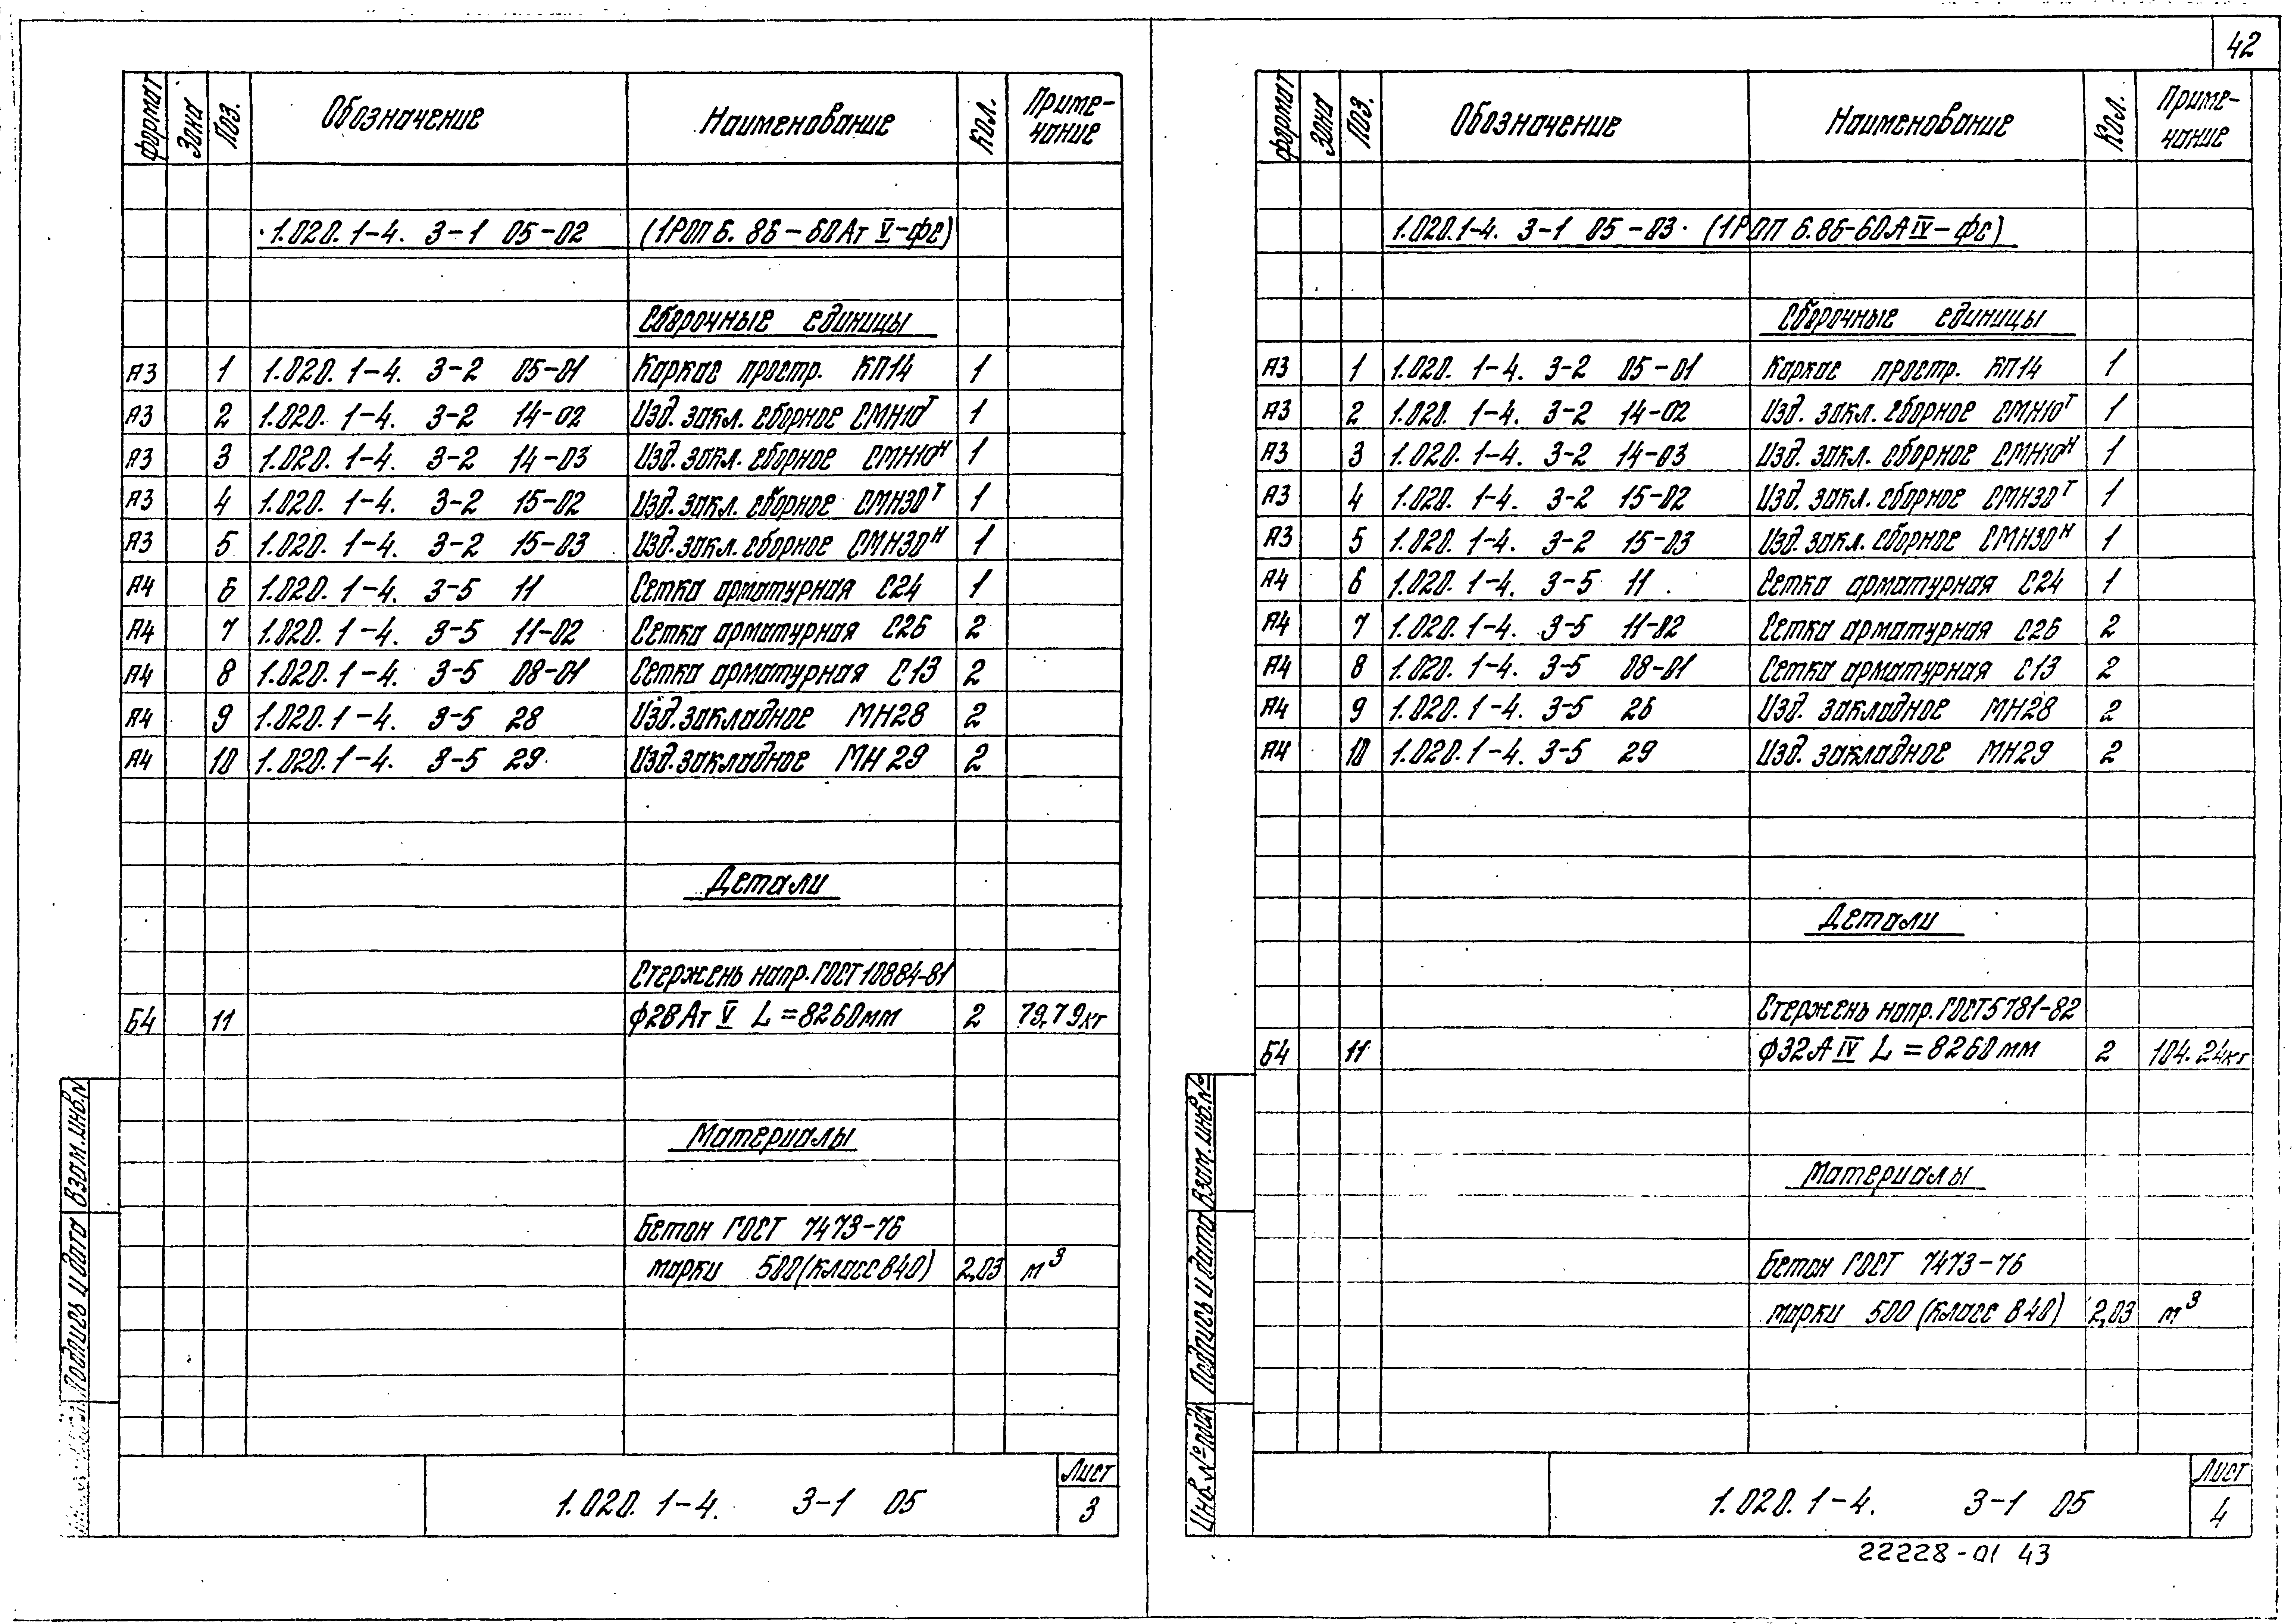 42
Формат Зона Поз. Обозначение Наименование Кол. Приме-
чание
1.020.1-4. 3-1 05-02 (1РОП 6.86-60Ат V-фс)
Сборочные единицы
А3 1 1.020.1-4. 3-2 05-01 Каркас простр. КП14 1
А3 2 1.020.1-4. 3-2 14-02 Изд. закл. сборное СМН10Т 1
А3 3 1.020.1-4. 3-2 14-03 Изд. закл. сборное СМН10Н 1
А3 4 1.020.1-4. 3-2 15-02 Изд. закл. сборное СМН30Т 1
А3 5 1.020.1-4. 3-2 15-03 Изд. закл. сборное СМН30Н 1
А4 6 1.020.1-4. 3-5 11 Сетка арматурная С24 1
А4 7 1.020.1-4. 3-5 11-02 Сетка арматурная С26 2
А4 8 1.020.1-4. 3-5 08-01 Сетка арматурная С13 2
А4 9 1.020.1-4. 3-5 28 Изд. закладное МН28 2
А4 10 1.020.1-4. 3-5 29 Изд. закладное МН29 2
Детали
Стержень напр. ГОСТ 10884-81
Б4 11 ф28 Ат V L=8260мм 2 79,79кг
Материалы
Бетон ГОСТ 7473-76
марки 500 (класс В40) 2,03 м³
Взам. инв. N
Подпись и дата
1.020.1-4. 3-1 05
Лист
3
Формат Зона Поз. Обозначение Наименование Кол. Приме-
чание
1.020.1-4. 3-1 05-03 (1РОП 6.86-60А IV-фс)
Сборочные единицы
А3 1 1.020.1-4. 3-2 05-01 Каркас простр. КП14 1
А3 2 1.020.1-4. 3-2 14-02 Изд. закл. сборное СМН10Т 1
А3 3 1.020.1-4. 3-2 14-03 Изд. закл. сборное СМН10Н 1
А3 4 1.020.1-4. 3-2 15-02 Изд. закл. сборное СМН30Т 1
А3 5 1.020.1-4. 3-2 15-03 Изд. закл. сборное СМН30Н 1
А4 6 1.020.1-4. 3-5 11 Сетка арматурная С24 1
А4 7 1.020.1-4. 3-5 11-02 Сетка арматурная С26 2
А4 8 1.020.1-4. 3-5 08-01 Сетка арматурная С13 2
А4 9 1.020.1-4. 3-5 26 Изд. закладное МН28 2
А4 10 1.020.1-4. 3-5 29 Изд. закладное МН29 2
Детали
Стержень напр. ГОСТ 5781-82
Б4 11 ф32А IV L=8260мм 2 104.24кг
Материалы
Бетон ГОСТ 7473-76
марки 500 (класс В40) 2,03 м³
Взам. инв. №
Подпись и дата
Инв. № подл
1.020.1-4. 3-1 05
Лист
4
22228-01 43